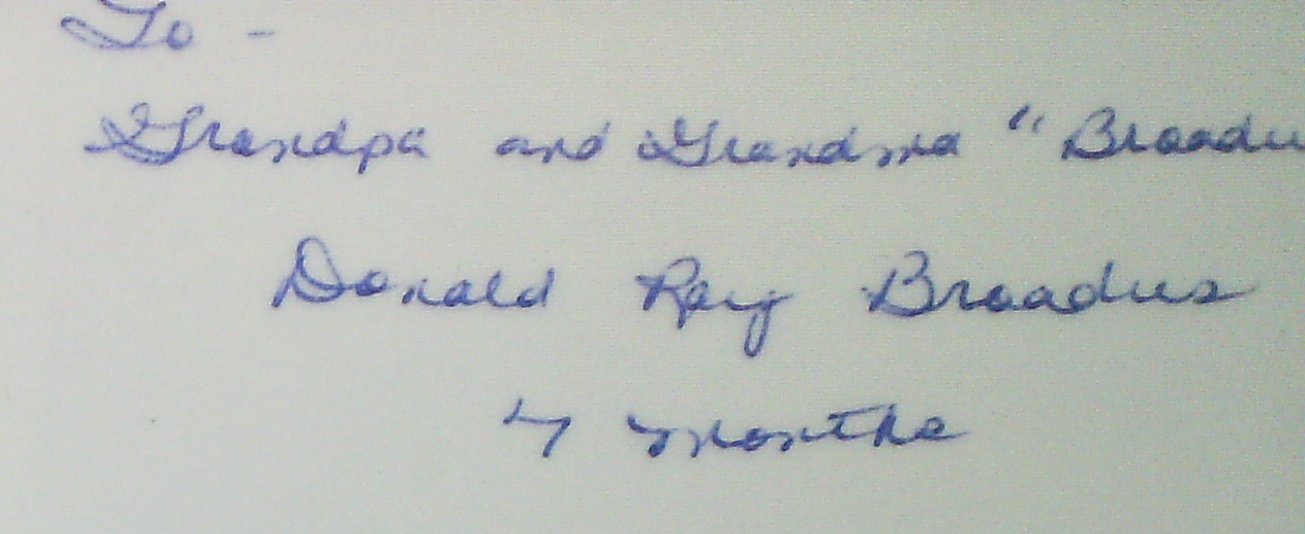 To -
Grandpa and Grandma "Broadu
Donald Ray Broadus
7 months